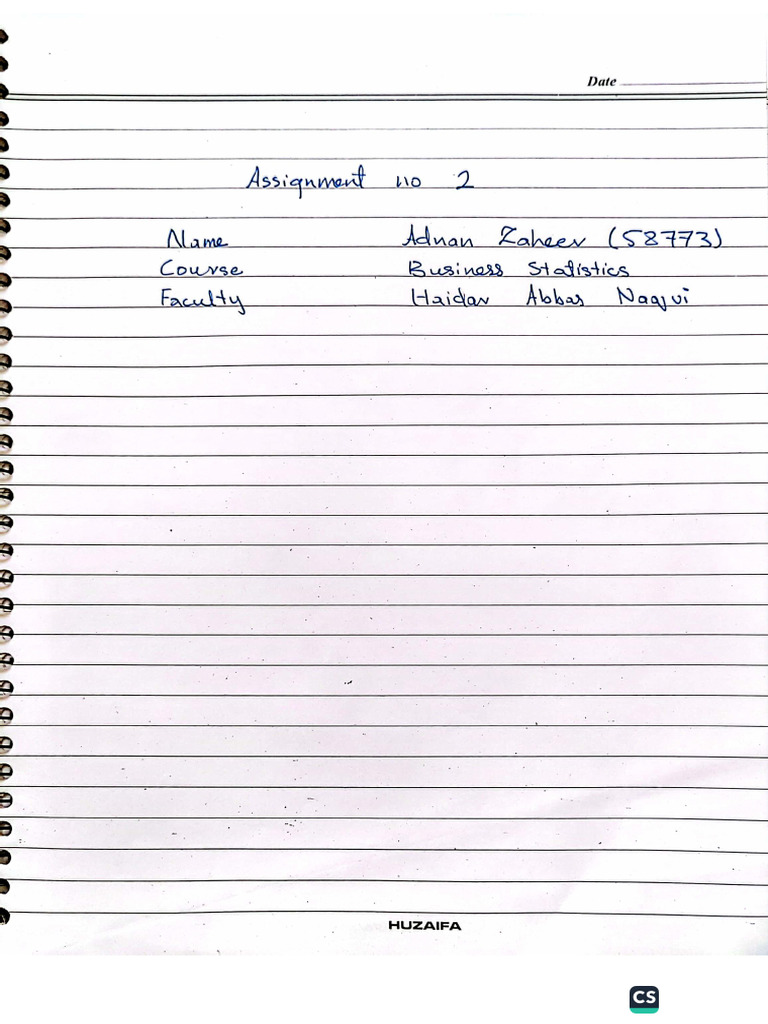 Date
Assignment no 2
Name Adnan Zaheer (58773)
Course Business Statistics
Faculty Haidar Abbas Naqvi
HUZAIFA
CS